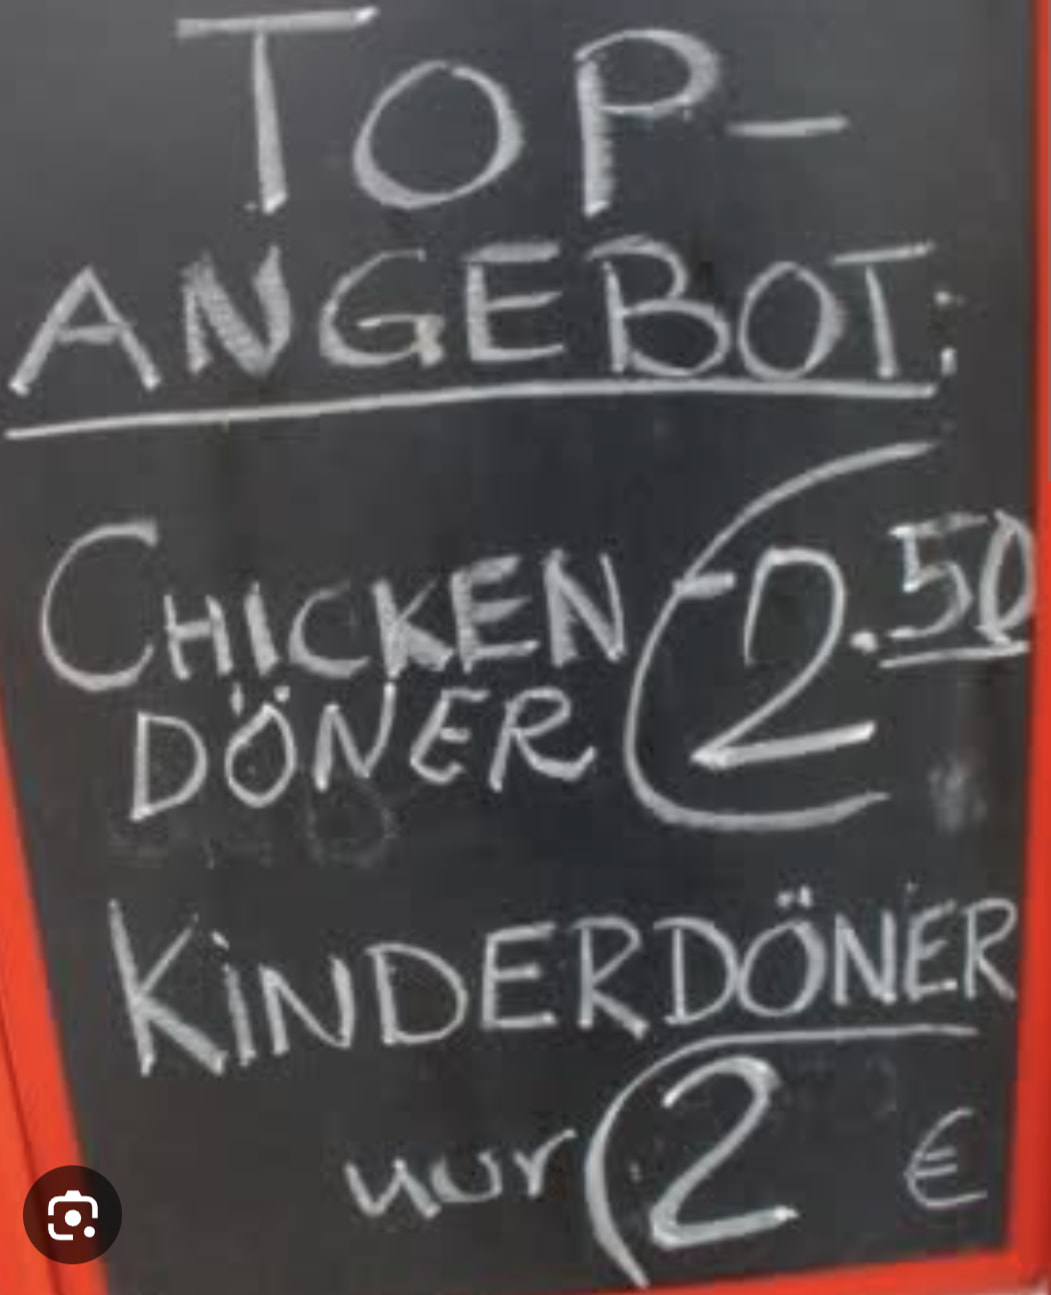 TOP-
ANGEBOT:
CHICKEN 2.50
DÖNER
KINDERDÖNER
nur 2 €